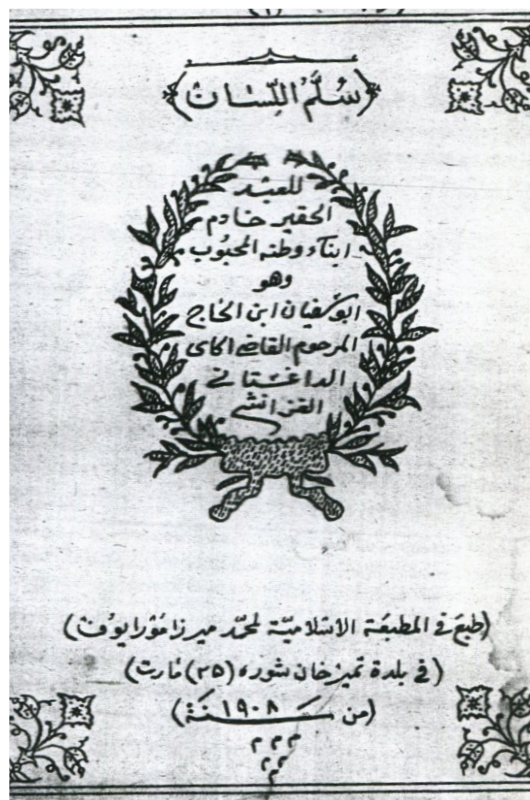 سُلَّمُ اللِّسَان
للعبد
الحقير خادم
ابناء وطنه المحبوب
وهو
ابو سفيان ابن الحاج
المرحوم القاضى اكاى
الداغستانى
القزانشى
(طبع فى المطبعة الاسلاميّة لمحمّد ميرزا مَوْرايوف)
(فى بلدة تميرخان شوره (٢٥) مارت)
(من سَنَة ١٩٠٨)
م م م
م م
م